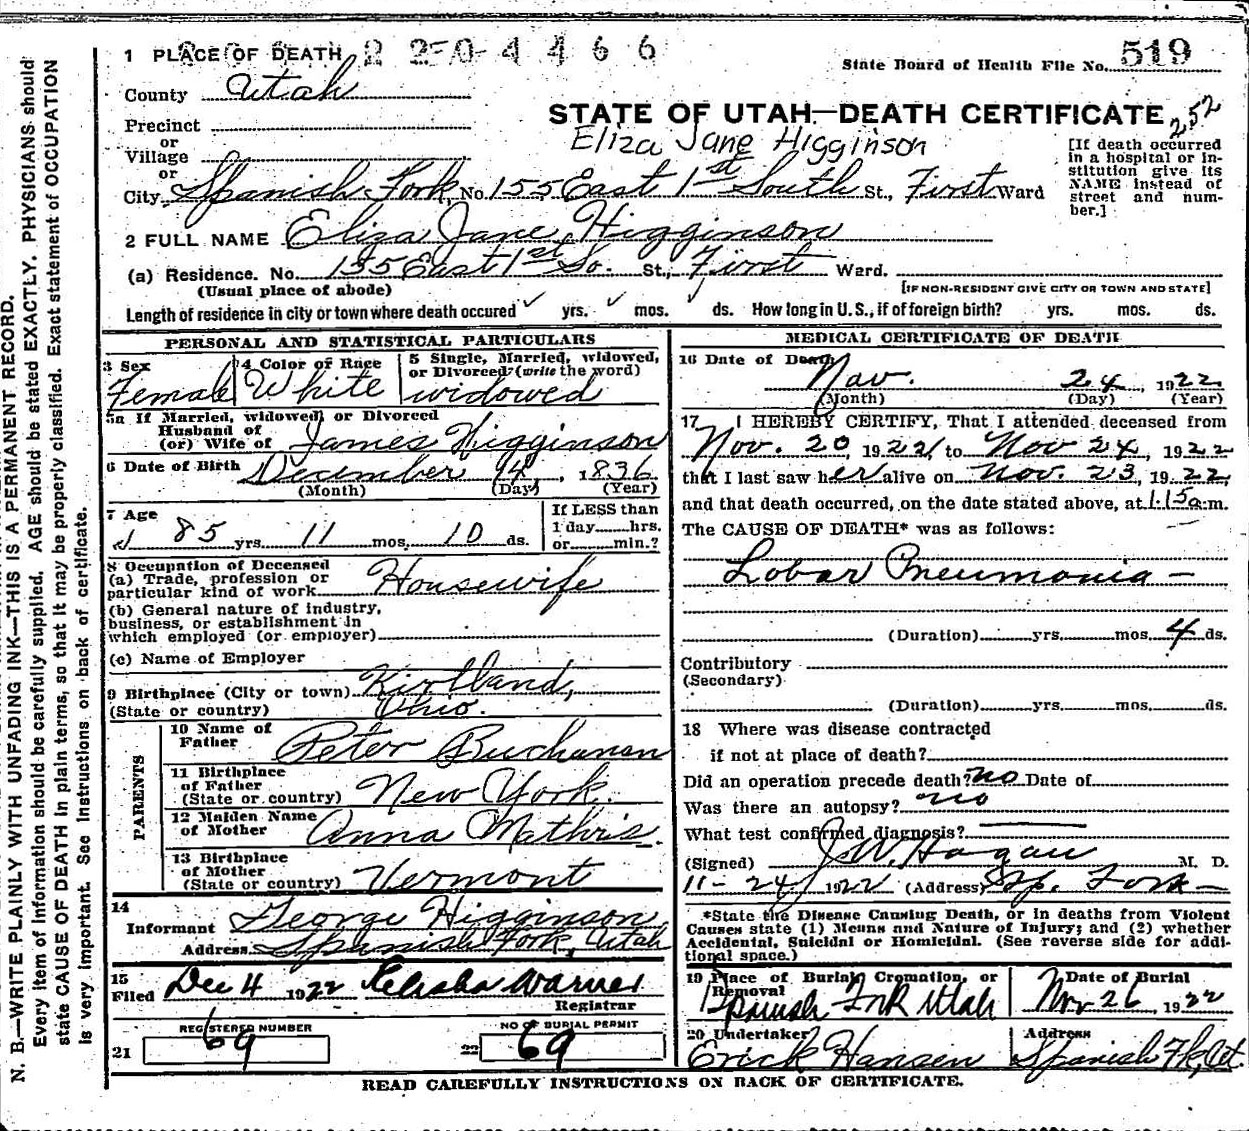 N. B.—WRITE PLAINLY WITH UNFADING INK—THIS IS A PERMANENT RECORD.
Every item of Information should be carefully supplied. AGE should be stated EXACTLY. PHYSICIANS should
state CAUSE OF DEATH in plain terms, so that it may be properly classified. Exact statement of OCCUPATION
is very important. See Instructions on back of certificate.
1 PLACE OF DEATH 2 2 0 4 4 6 6
State Board of Health File No. 519
County Utah
STATE OF UTAH—DEATH CERTIFICATE 252
Precinct
Eliza Jane Higginson
or
Village
or
City Spanish Fork, No. 155 East 1st South St., First Ward
[If death occurred
in a hospital or in-
stitution give its
NAME instead of
street and num-
ber.]
2 FULL NAME Eliza Jane Higginson
(a) Residence. No. 155 East 1st So. St., First Ward.
(Usual place of abode)
[IF NON-RESIDENT GIVE CITY OR TOWN AND STATE]
Length of residence in city or town where death occured ✓ yrs. ✓ mos. ✓ ds. How long in U.S., if of foreign birth? yrs. mos. ds.
PERSONAL AND STATISTICAL PARTICULARS
3 Sex 4 Color of Race 5 Single, Married, widowed,
or Divorced? (write the word)
Female White widowed
5a If Married, widowed, or Divorced
Husband of
(or) Wife of James Higginson
6 Date of Birth December 14, 1836
(Month) (Day) (Year)
7 Age If LESS than
85 yrs. 11 mos. 10 ds. 1 day hrs.
or min.?
8 Occupation of Deceased
(a) Trade, profession or
particular kind of work Housewife
(b) General nature of industry,
business, or establishment in
which employed (or employer)
(c) Name of Employer
9 Birthplace (City or town) Kirtland,
(State or country) Ohio.
PARENTS
10 Name of
Father Peter Buchanan
11 Birthplace
of Father
(State or country) New York.
12 Maiden Name
of Mother Anna Mathis.
13 Birthplace
of Mother
(State or country) Vermont
14
Informant George Higginson
Address Spanish Fork, Utah
15
Filed Dec 4 1922 Elisha Warner
Registrar
REGISTERED NUMBER NO OF BURIAL PERMIT
21 69 22 69
MEDICAL CERTIFICATE OF DEATH
16 Date of Death
Nov. 24, 1922
(Month) (Day) (Year)
17 I HEREBY CERTIFY, That I attended deceased from
Nov. 20, 1922, to Nov 24, 1922
that I last saw her alive on Nov. 23, 1922,
and that death occurred, on the date stated above, at 1.15 a.m.
The CAUSE OF DEATH* was as follows:
Lobar Pneumonia —
(Duration) yrs. mos. 4 ds.
Contributory
(Secondary)
(Duration) yrs. mos. ds.
18 Where was disease contracted
if not at place of death?
Did an operation precede death? no Date of
Was there an autopsy? no
What test confirmed diagnosis? —
(Signed) J. W. Hagan M. D.
11-24, 1922 (Address) Sp. Fork —
*State the Disease Causing Death, or in deaths from Violent
Causes state (1) Means and Nature of Injury; and (2) whether
Accidental, Suicidal or Homicidal. (See reverse side for addi-
tional space.)
19 Place of Burial, Cremation, or Date of Burial
Removal
Spanish Fork Utah Nov 26 1922
20 Undertaker Address
Erick Hansen Spanish Fk, Ut.
READ CAREFULLY INSTRUCTIONS ON BACK OF CERTIFICATE.